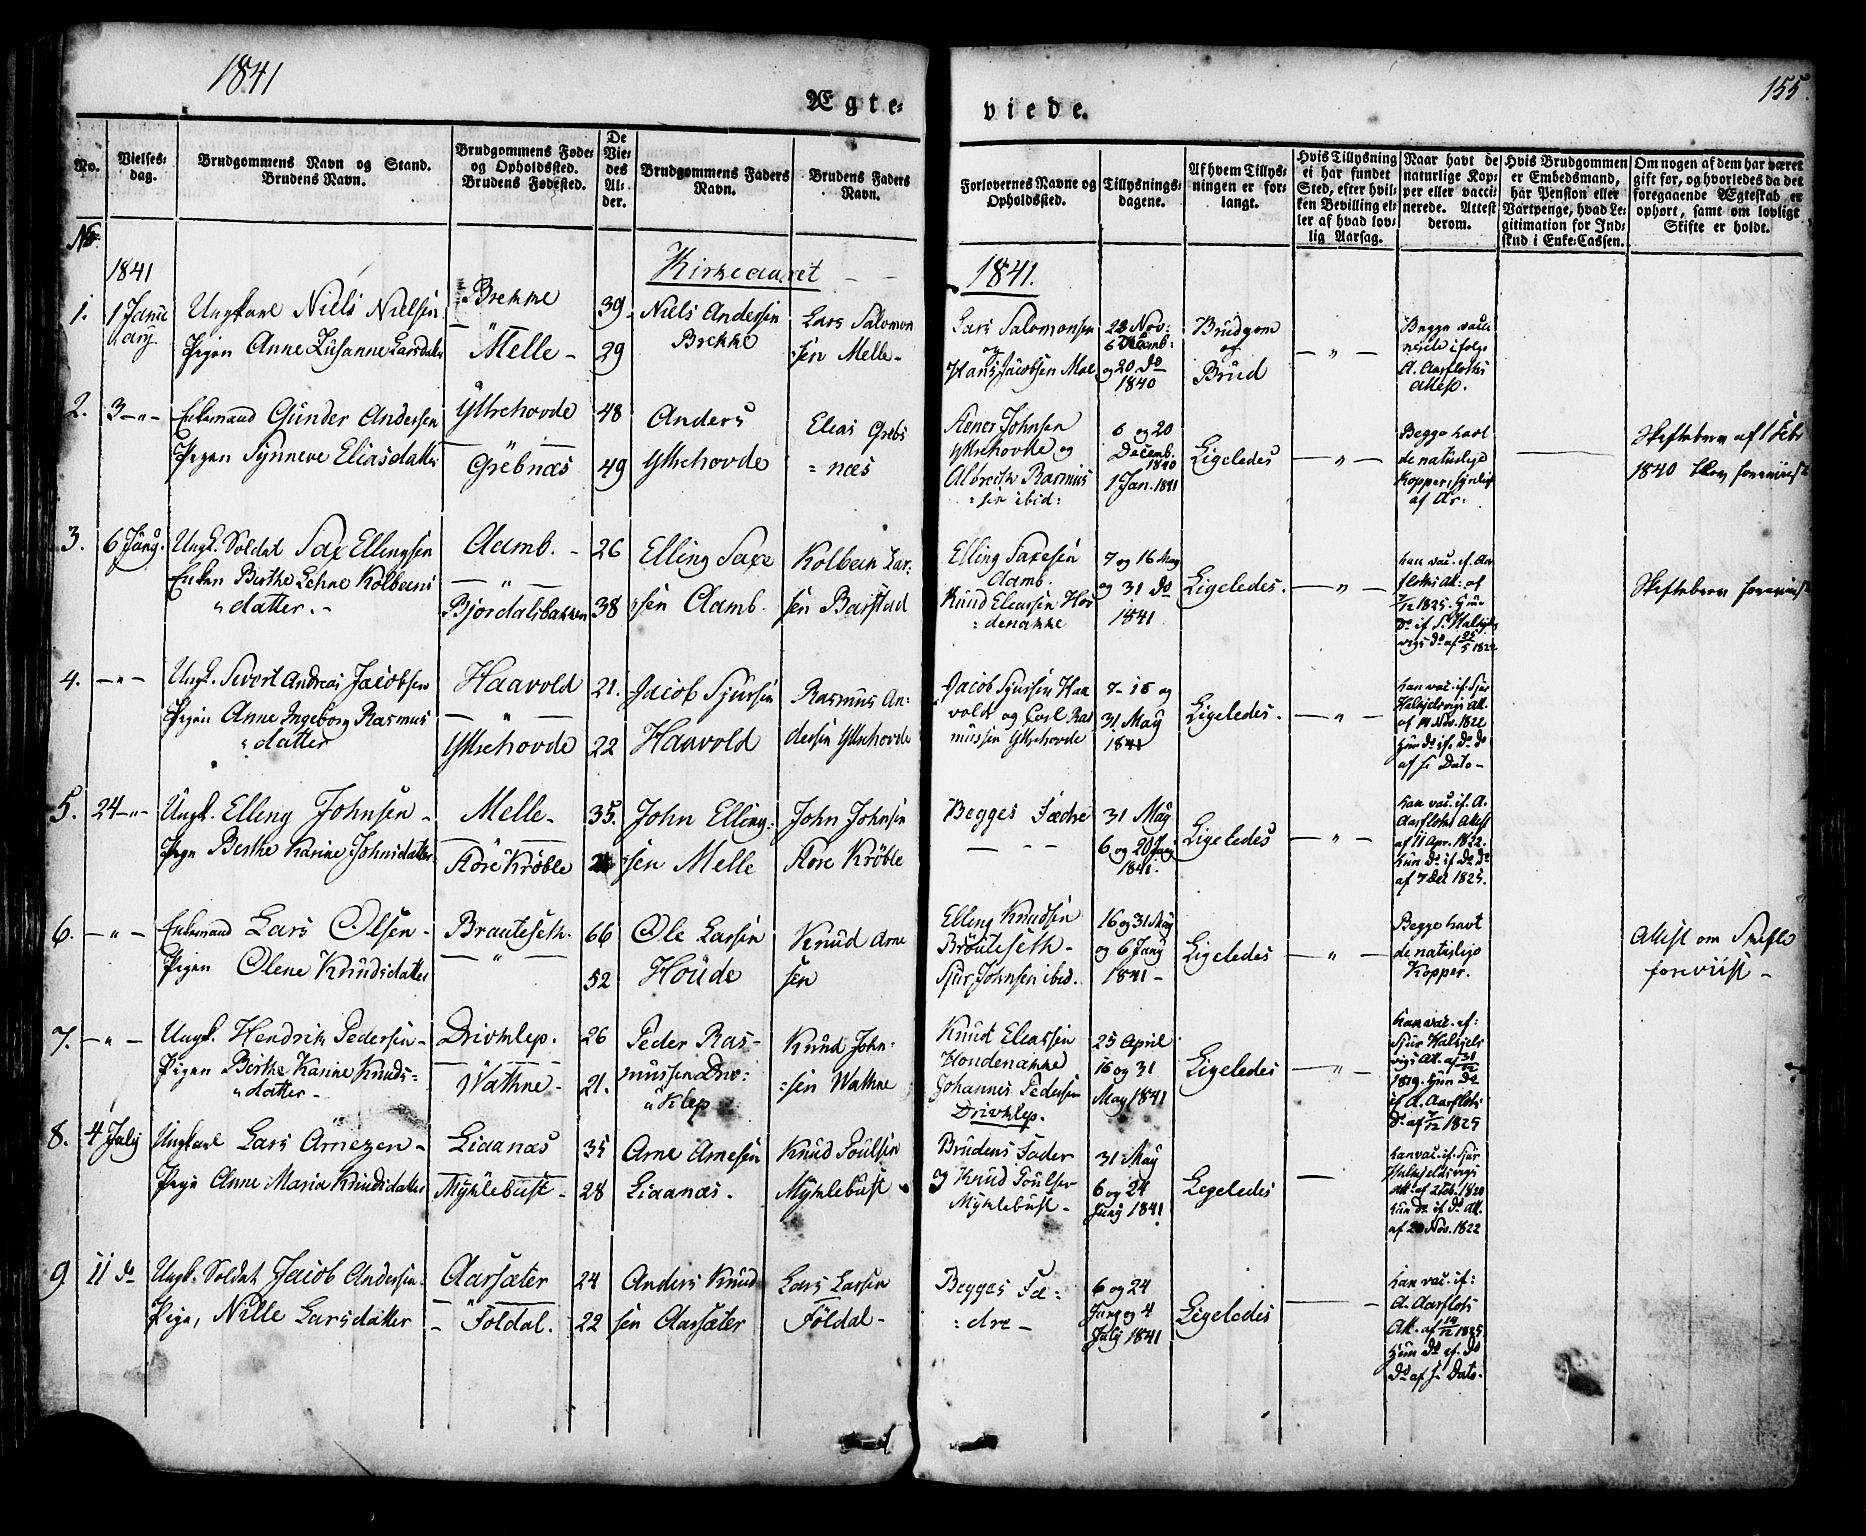 1841
155.
Ægte=
viede.
No.
Vielses=
dag.
Brudgommens Navn og Stand.
Brudens Navn.
Brudgommens Føde=
og Opholdssted.
Brudens Fødested.
De
Vie=
des
Al=
der.
Brudgommens Faders
Navn.
Brudens Faders
Navn.
Forlovernes Navne og
Opholdssted.
Tillysnings=
dagene.
Af hvem Tillys=
ningen er for=
langt.
Hvis Tillysning
ei har fundet
Sted, efter hvil=
ken Bevilling el=
ler af hvad lov=
lig Aarsag.
Naar havt de
naturlige Kop=
per eller vacci=
nerede. Attest
derom.
Hvis Brudgommen
er Embedsmand,
har Pension eller
Vartpenge, hvad Le=
gitimation for Ind=
skud i Enke=Cassen.
Om nogen af dem har været
gift før, og hvorledes da det
foregaaende Ægteskab er
ophørt, samt om lovligt
Skifte er holdt.
No.
1841
Kirkeaaret
1841.
1.
1 Janu
uary
Ungkarl Niels Nielsen
Pigen Anne Susanne Larsdatter
Brekke
Melle -
39
29
Niels Andersen
Brekke
Lars Salomon
sen Melle -
Lars Salomonsen
og
Hans Jacobsen Moe
28 Nov:
6 Decemb:
og 20 do
1840
Brudgom
og
Brud
— " —
Begge vacci
nerede ifølge
A. Aarflots
Attest.
2.
3 - " -
Enkemand Gunder Andersen
Pigen Synneve Eliasdatter
Yttrehovde
Grebnæs
48
49
Anders
Yttrehovde
Elias Grebs
= næs
Johnsen
Yttrehovde og
Albrecth Rasmus
= sen ibid:
6 og 20
Decemb.
1840
1 Jan. 1841
Ligeledes
— " —
Begge havt
de naturlige
Kopper, synlig
af Ar:
Skiftebrev af 1 Febr
1840 blev foreviist
3.
6 Juny.
Ungk. Soldat Saxe Ellingsen
Enken Berthe Lehne Kolbens
" datter. -
Aamb. -
— " —
Bjordalsbakken
26
38
Elling Saxe
sen Aamb.
Kolbein Lar
sen Barstad
Elling Saxesen
Aamb.
Knud Eleasen Hov
= denakke
7 og 16 May
og 31 do
1841
Ligeledes.
— " —
han vac. if. Aar
flots Att: af
7/12 1825. Hun
do if. S. Halkjels
vigs do af 25/5 1822
Skiftebrev foreviist
4.
— " —
Ungk. Sivert Andreas Jacobsen
Pigen Anne Ingeborg Rasmus
" datter
Haavold
— " —
Yttrehovde
21.
22
Jacob Sjursen
Haavold
Rasmus An=
dersen Yttrehovde
Jacob Sjursen Haa
vold og Carl Ras
mussen Yttrehovde
7 - 16 og
31 May
1841
Ligeledes.
— " —
han vac. if. Sjur
Halkjelsvigs Att.
af 14 Nov. 1822
Hun do if. do do
af s. Dato -
5.
24 - " -
Ungk. Elling Johnsen -
Pigen Berthe Karine Johnsdatter
Melle -
Flore Krøble
35.
John Elling=
sen Melle
John Johnsen
Flore Krøble
Begges Fædre
31 May
6 og 20 Juny
1841.
Ligeledes
— " —
han vac. if. A.
Aarflots Attest
af 11 Apr. 1822.
Hun do if do do
af 7 Dec 1825.
6.
— " —
Enkemand Lars Olsen -
Pigen Olene Knudsdatter
Brauteseth.
— " —
66
52
Ole Larsen
Houde
Knud Arne
sen
Elling Knudsen
Brauteseth -
Sjur Johnsen ibid.
16 og 31 May
og 6 Juny
1841 -
Ligeledes
— " —
Begge havt
de naturlige
Kopper.
Attest om Skifte
foreviist -
7.
— " —
Ungk. Hendrik Pedersen -
Pigen Berthe Karine Knuds=
" datter -
Drivklep.
Wathne -
26
21.
Peder Ras-
mussen Driv=
" klep
Knud John=
=sen Wathne
Knud Eleassen
Hovdenakke
Johannes Pedersen
Drivklep.
25 April
16 og 31
May 1841
Ligeledes
— " —
han vac. if:
Sjur Halkjels
vigs Att. af 31/12
1819. Hun do
if A. Aarflots
do af 7/12 1825
8.
4 July
Ungkarl Lars Arnezen -
Pige Anne Maria Knudsdatter
Liaanæs
Myklebust -
35
28
Arne Arnesen
Liaanæs.
Knud Poulsen
Myklebust
Brudens Fader
og Knud Poulsen
Myklebust -
31 May
6 og 24
Juny 1841
Ligeledes
—
han vac. if. Sjur
Halkjelsvigs
Att. af 2 Feb. 1820
Hun do if do Att.
af 20 Nov. 1822
9
11 do
Ungk. Soldat Jacob Andersen
Pige, Nille Larsdatter
Aarsæter
- Foldal.
24
22
Anders Knud
sen Aarsæter
Lars Larsen
Foldal -
Begges Fæ=
= dre -
6 og 24
Juny og 4
July 1841
Ligeledes
—
han vac. if:
A. Aarflots
Att. af 14/12 1825
Hun do if. do
do af s. Dato.